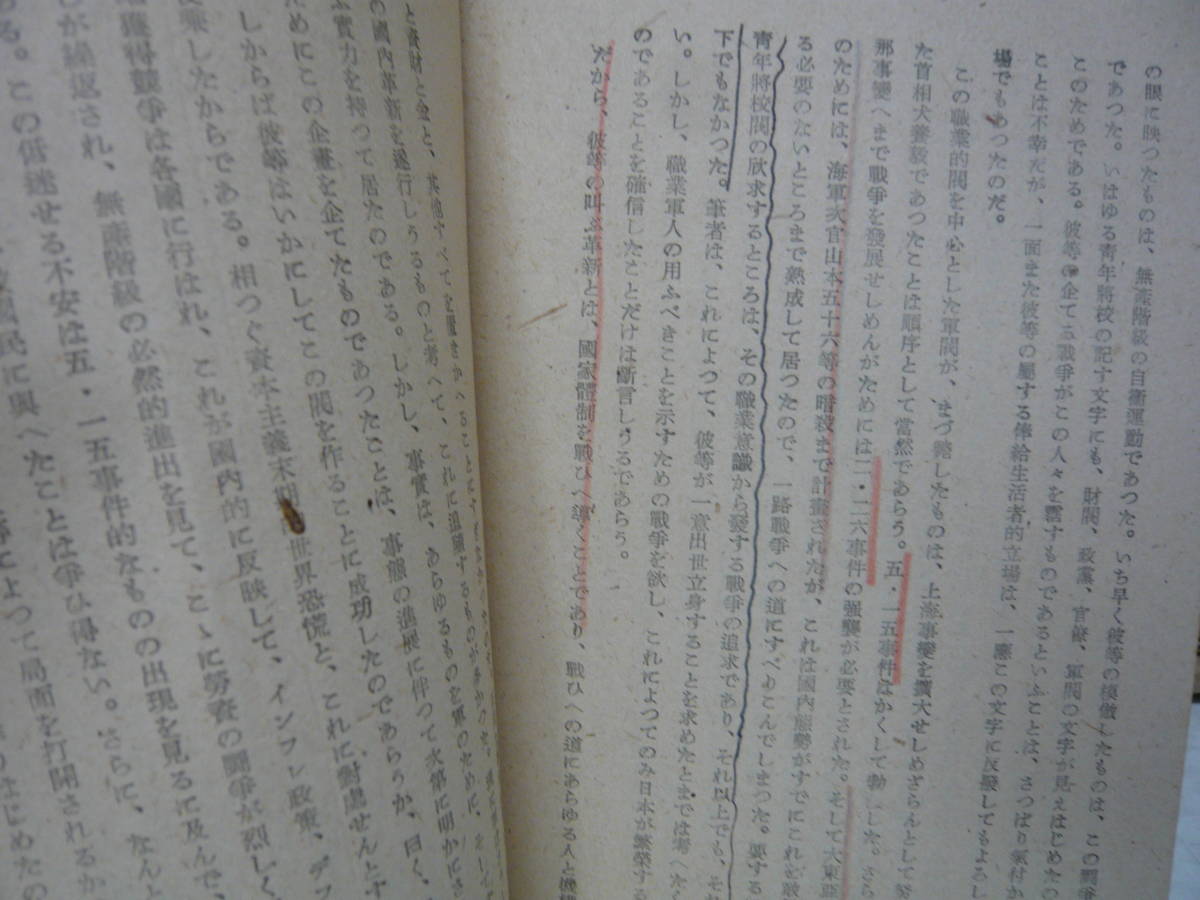 の眼に映つたものは、無産階級の自衞運動であつた。いち早く彼等の模倣したものは、この鬪爭
であつた。いはゆる青年將校の記す文字にも、財閥、政黨、官僚、軍閥の文字が見えはじめたの
このためである。彼等の企てる戰爭がこの人々を霑すものであるといふことは、さつぱり氣付か
ことは不幸だが、一面また彼等の屬する俸給生活者的立場は、一應この文字に反撥してもよろし
場でもあつたのだ。
この職業的閥を中心とした軍閥が、まづ斃したものは、上海事變を擴大せしめざらんとして努
た首相犬養毅であつたことは順序として當然であらう。五・一五事件はかくして勃した。さら
那事變へまで戰爭を發展せしめんがためには二・二六事件の强襲が必要とされた。そして大東亞
のためには、海軍次官山本五十六等の暗殺まで計畫されたが、これは國内態勢がすでにこれを敢
る必要のないところまで熟成して居つたので、一路戰爭への道にすべりこんでしまつた。要する
青年將校閥の欣求するところは、その職業意識から發する戰爭の追求であり、それ以上でも、それ
下でもなかつた。筆者は、これによつて、彼等が一意出世立身することを求めたとまでは考へた
い。しかし、職業軍人の用ふべきことを示すための戰爭を欲し、これによつてのみ日本が繁榮する
のであることを確信したことだけは斷言しうるであらう。
だから、彼等の叫ぶ革新とは、國家體制を戰ひへ導くことであり、戰ひへの道にあらゆる人と機構
と資財と金と、其他すべてを置きかへることに
の國内革新を遂行しうるものと考へて、これに追隨するものが
ぶ實力を持つて居たのである。しかし、事實は、あらゆるものを軍のために、そして
ためにこの企畫を企てたものであつたことは、事態の進展に伴つて次第に明かにさ
しからば彼等はいかにしてこの閥を作ることに成功したのであらうか、曰く、
使乗したからである。相つぐ資本主義末期世界恐慌と、これに對處せんとす
獲得競爭は各國に行はれ、これが國内的に反映して、インフレ政策、デフ
が繰返され、無産階級の必然的進出を見て、こゝに勞資の鬪爭が烈しく
る。この低迷せる不安は五・一五事件的なものの出現を見るに及んで、
國民に與へたことは爭ひ得ない。さらに、なんと
等によつて局面を打開されるか
はじめたの